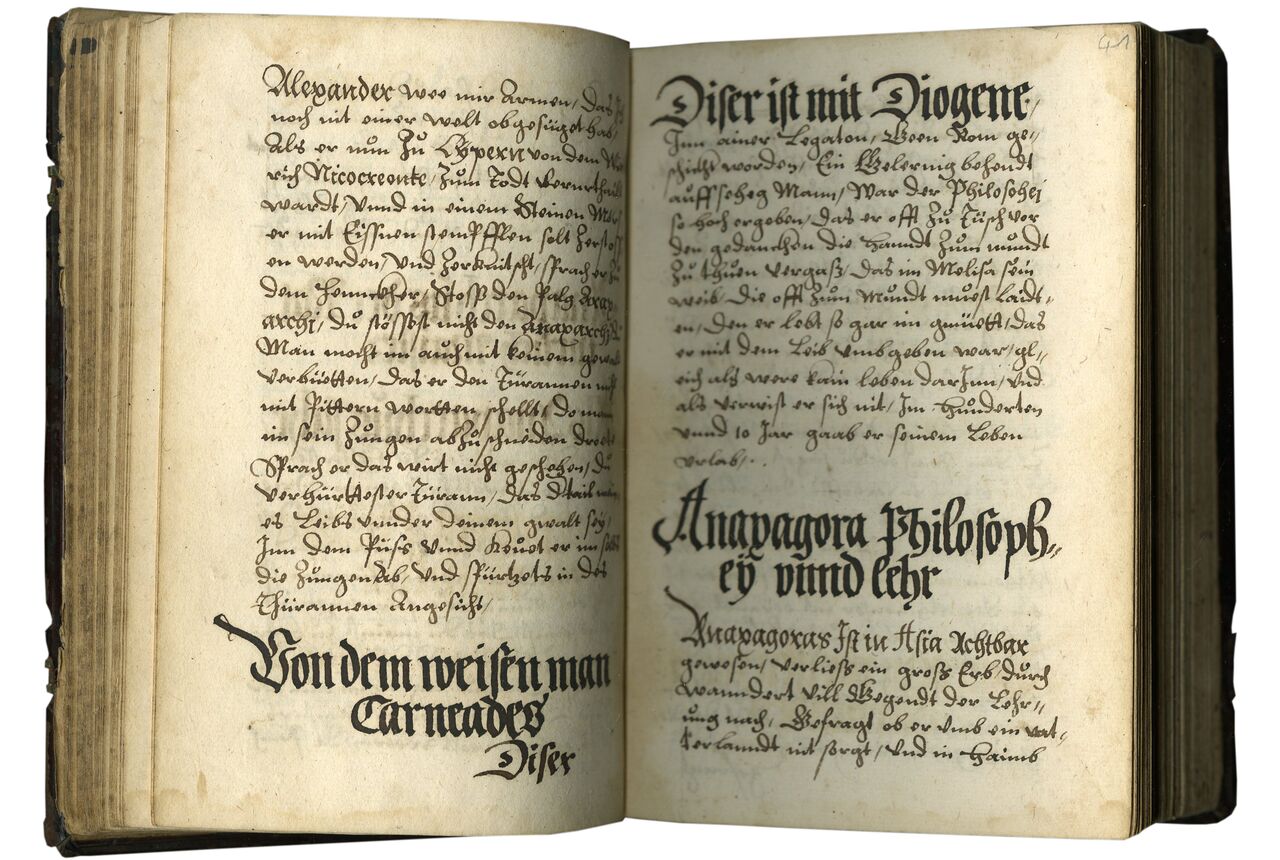 Alexander wee mir Armen, Das Ich
noch nit einer welt obgesüget hab,
Als er nun Zu Cypern von dem
rich Nicocreonte, zum Todt verurthailt
wardt, Vnnd in einem Steinen
er mit Eissnen stempfflen solt Zerstoss
en werden, Vnd Zerknitscht, sprach er Zu
dem Hennckher, Stoss den Palg Anax
archj, du stössest nicht den Anaxarchj
Man mocht im auch mit keinem gewalt
verbietten, Das er den Türannen nicht
mit Pittern wortten schellt, Do man
im sein Zungen abZuschneiden droet
Sprach er das wirt nicht geschehen, Du
verhürttester Türann, Das dtail
es Leibs vnnder deinem gwalt sey,
Inn dem Püss Vnnd Keuet er im selbs
die Zungen ab, Vnd spürtzets in des
Thürannen Angesicht,
Von dem weisen man
Carneades
Diser
41
Diser ist mit Diogene,
Inn ainer Legaton, Geen Rom ge-
schickt worden, Ein Gelernig behendt
auffseheg Mann, War der Philosophej
so hoch ergeben, Das er offt Zu Tüsch vor
den gedanckhen die Handt Zum mundt
Zu thuen vergass, Das im Melisa sein
weib, Die offt Zum Mundt muest Laidt-
en, Den er lebt so gar im gmüett, das
er mit dem Leib vmbgeben war, gl-
eich als were kain leben dar Inn, Vnd
als verwist er sich nit, Im Hunderten
vnnd 10 Jar gaab er seinem Leben
vrlab,.
Anaxagora Philosoph-
ey vnnd lehr
Anaxagoras Ist in Asia Achtbar
gewesen, verliess ein gross Erb, durch
wanndert vill Gegendt der Lehr-
ung nach, Gefragt ob er vmb ein vat-
terlanndt nit sorgt, Vnd in Haimb